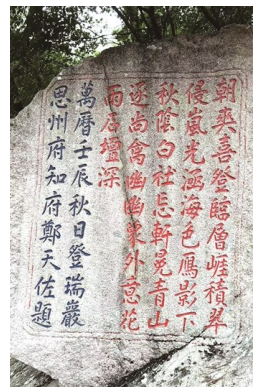 朝爽喜登臨層崖積翠
侵嵐光涵海色鴈影下
秋陰白社忘軒冕青山
逐尚禽幽幽象外意花
雨石壇深
萬曆壬辰秋日登瑞巖
思州府知府鄭天佐題